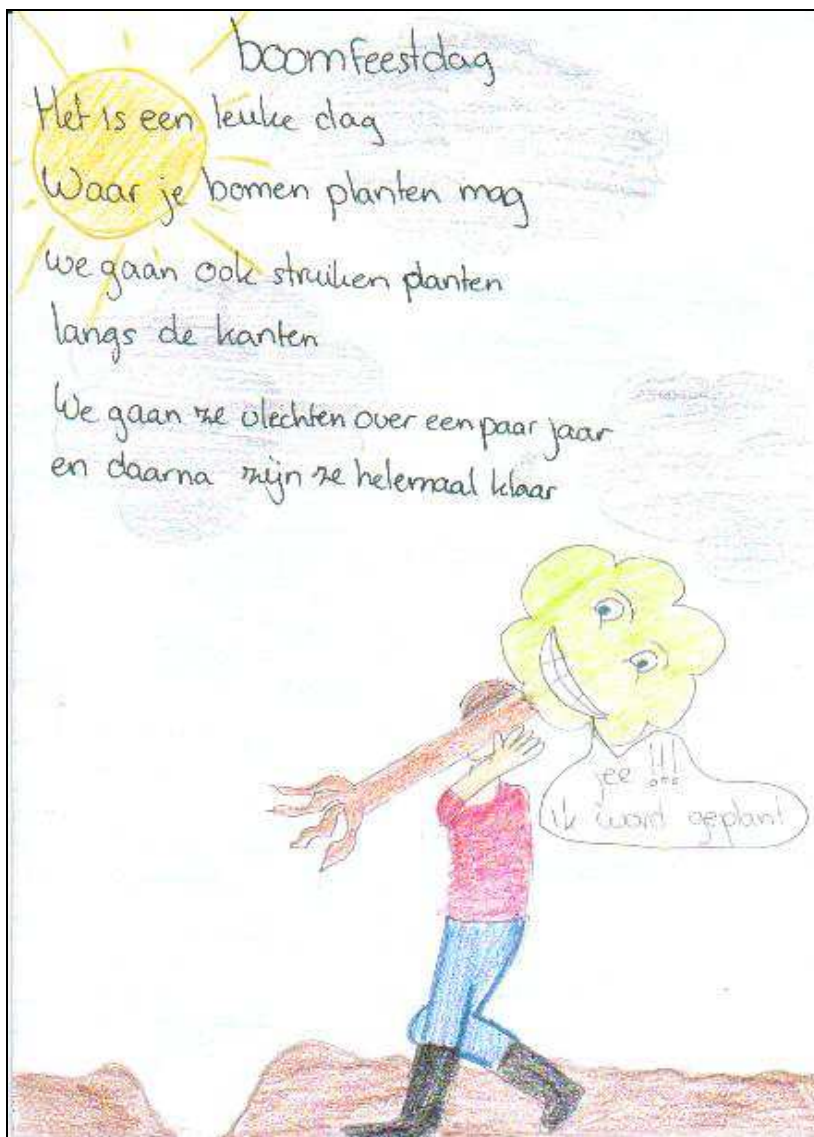 boomfeestdag
Het is een leuke dag
Waar je bomen planten mag
we gaan ook struiken planten
langs de kanten
We gaan ze vlechten over een paar jaar
en daarna zijn ze helemaal klaar
jee !!!
ik word geplant